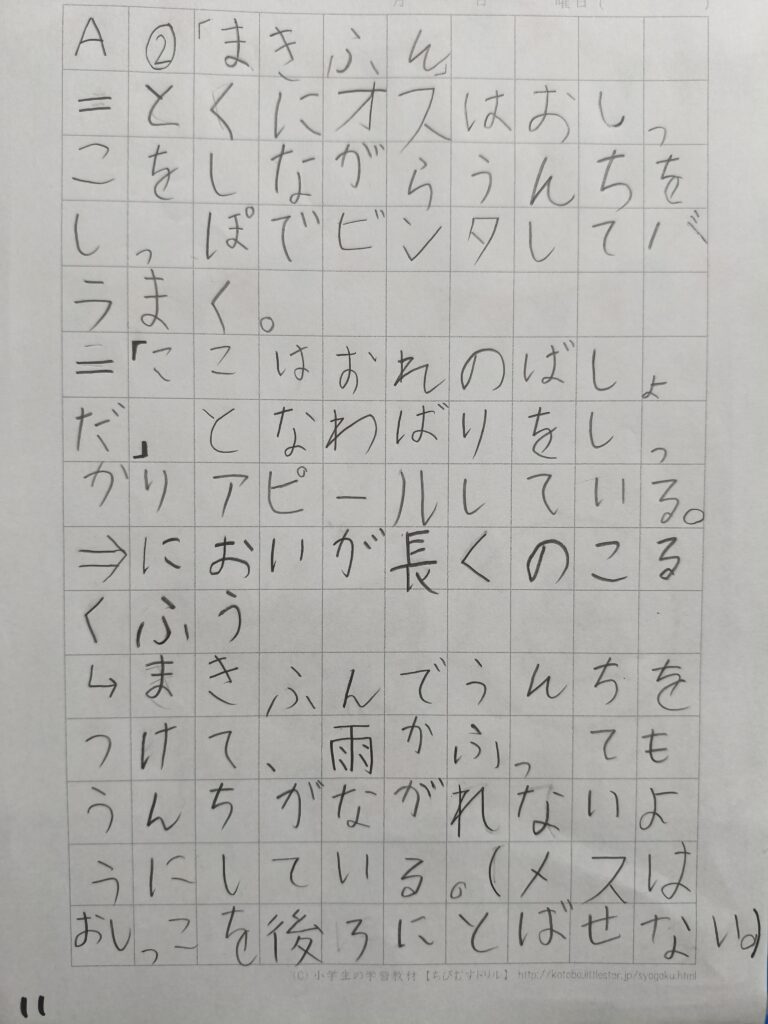 月 日 曜日(
A②「まきふん」
=とくにオスはおしっ
こをしながらうんちを
しっぽでビンタしてバ
うまく。
=「ここはおれのばしょ
だ」となわばりをしっ
かりアピールしている。
⇒においが長くのこる
くふう
↳まきふんでうんちを
つけて、雨かふっても
うんちがながれないよ
うにしている。(メスは
おしっこを後ろにとばせない。)
(C) 小学生の学習教材【ちびむすドリル】 http://kotoba.littlestar.jp/syogaku.html
11